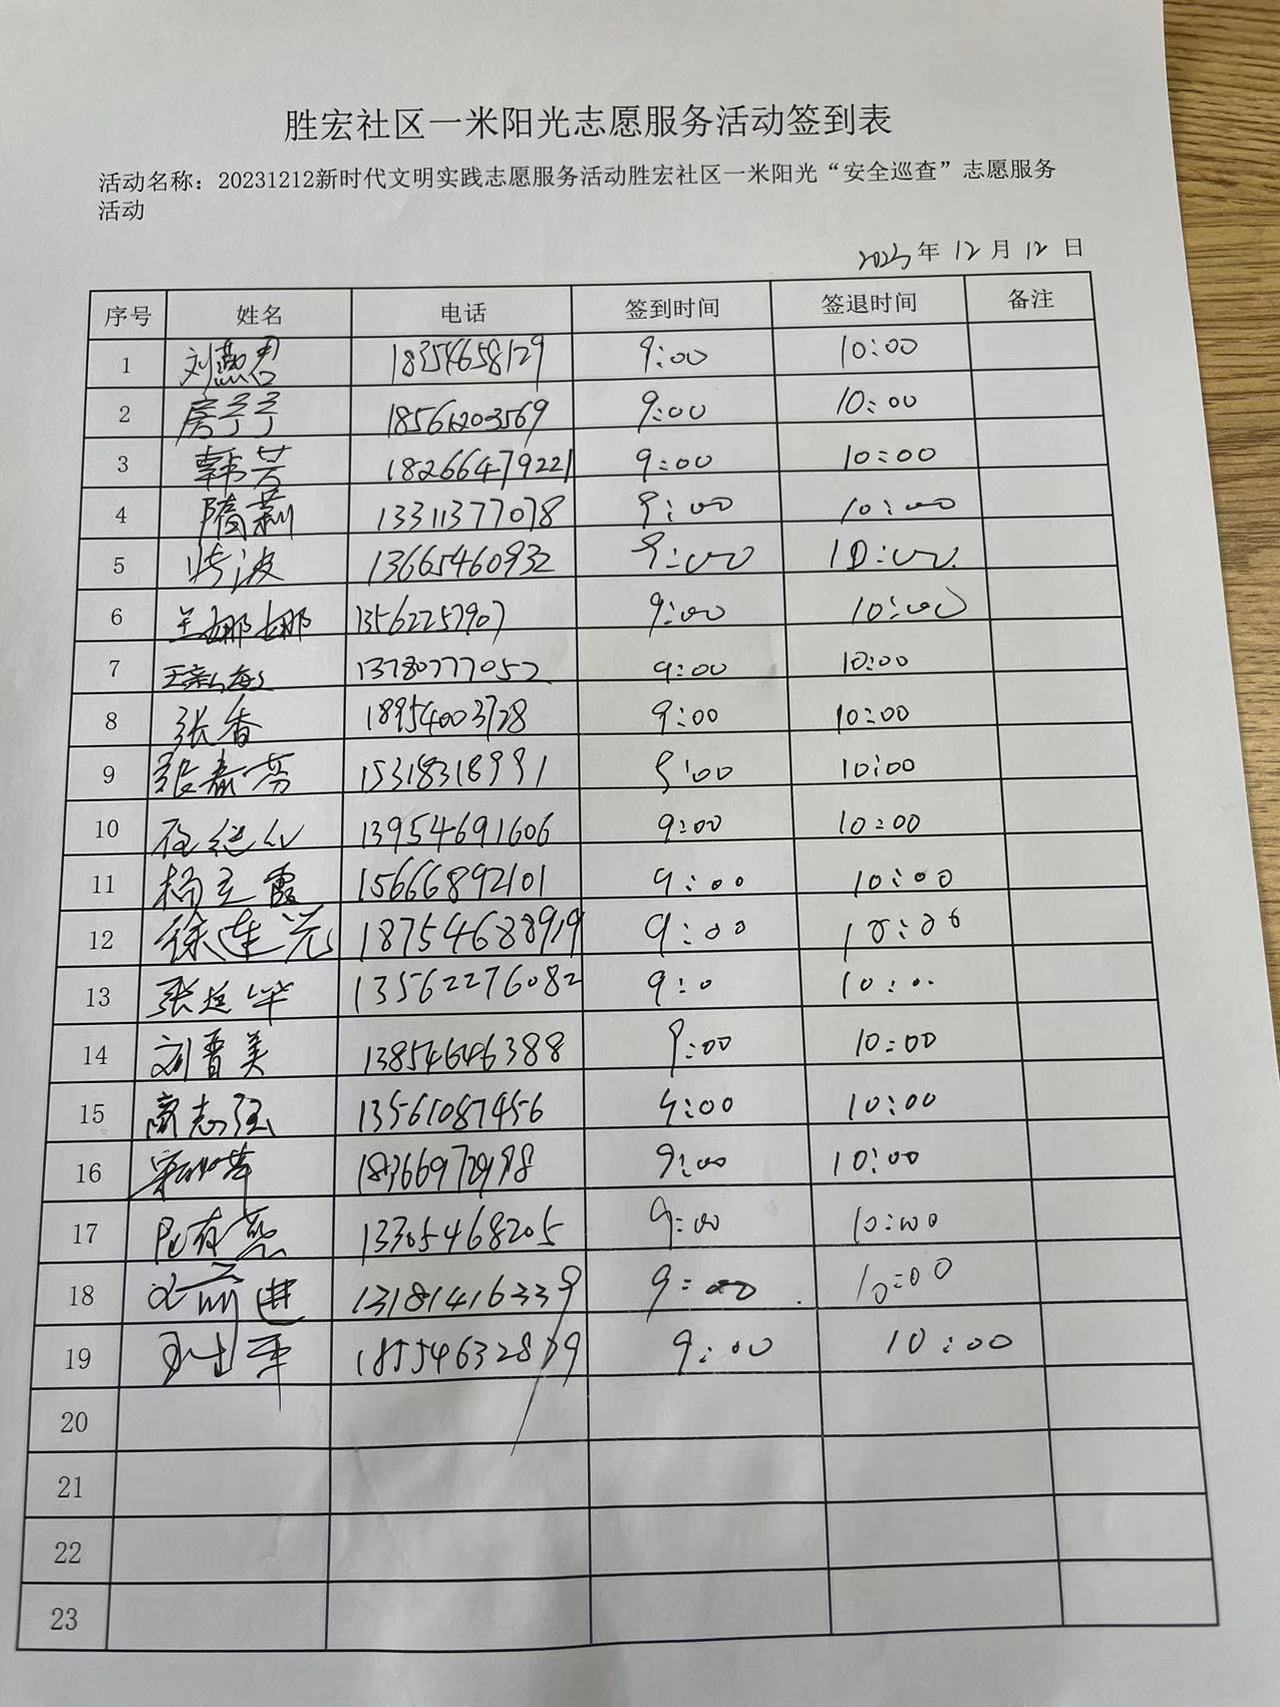 胜宏社区一米阳光志愿服务活动签到表
活动名称：20231212新时代文明实践志愿服务活动胜宏社区一米阳光“安全巡查”志愿服务
活动
2023年12月12日
序号 姓名 电话 签到时间 签退时间 备注
1 刘燕君 18354658129 9:00 10:00
2 房予予 18561203569 9:00 10:00
3 韩芳 18266479221 9:00 10:00
4 隋莉 13311377078 9:00 10:00
5 波 13665460932 9:00 10:00
6 王娜娜 13562257907 9:00 10:00
7 王 海 13780777052 9:00 10:00
8 张香 18954003728 9:00 10:00
9 张春芳 15318318991 9:00 10:00
10 13954691606 9:00 10:00
11 杨立霞 15666892101 9:00 10:00
12 徐连光 18754688919 9:00 10:00
13 张廷华 13562276082 9:0 10:00
14 刘晋美 13854646388 9:00 10:00
15 商志强 13561087456 9:00 10:00
16 9:00 10:00
17 13305468205 9:00 10:00
18 前进 13181416339 9:00 10:00
19 9:00 10:00
20
21
22
23